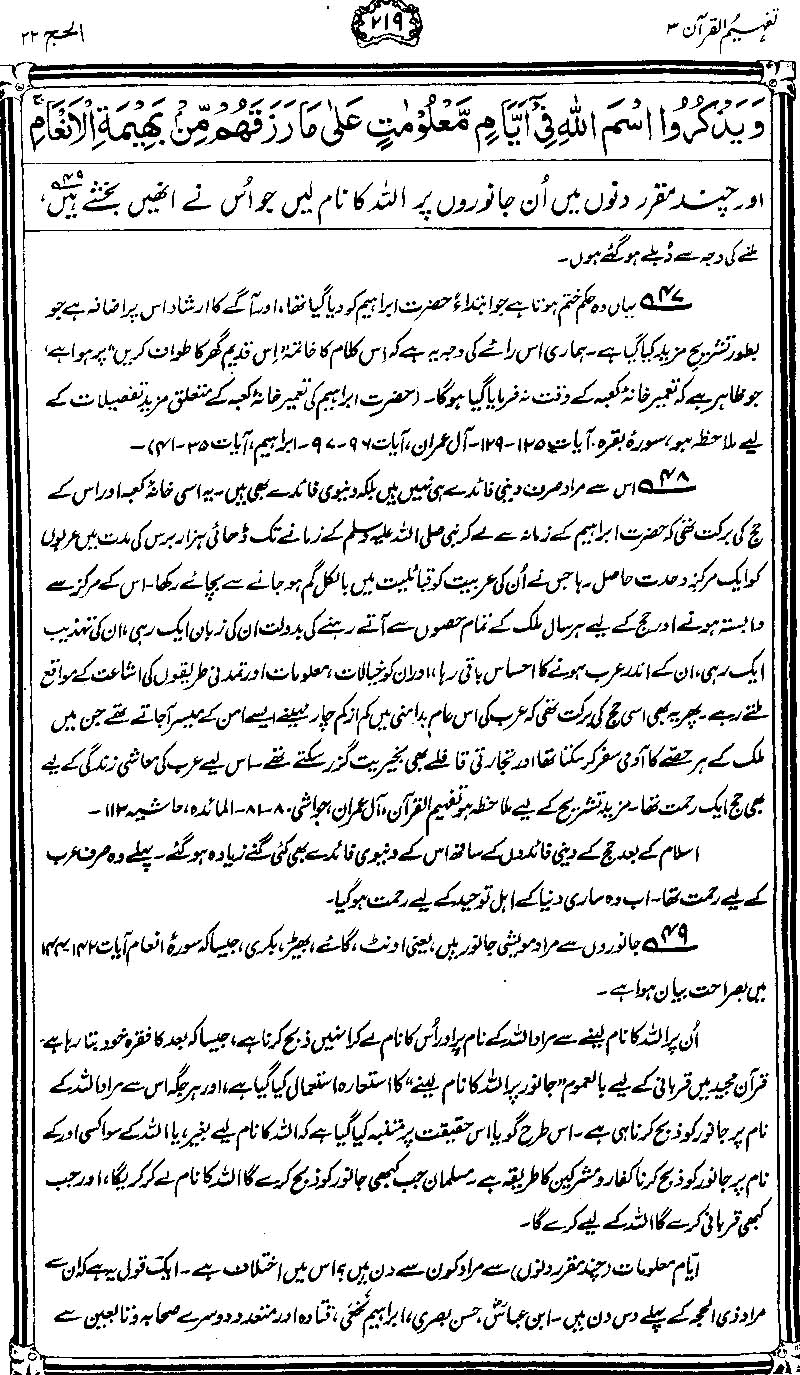 تفہیم القرآن ۳
۲۱۹
الحج ۲۲
وَيَذْكُرُوا اسْمَ اللّٰهِ فِيْٓ اَيَّامٍ مَّعْلُوْمٰتٍ عَلٰى مَا رَزَقَهُمْ مِّنْۢ بَهِيْمَةِ الْاَنْعَامِ ۚ
اور چند مقرر دنوں میں اُن جانوروں پر اللہ کا نام لیں جو اُس نے انھیں بخشے ہیں،۴۹
ملنے کی وجہ سے دُبلے ہوگئے ہوں۔
۴۷ یہاں وہ حکم ختم ہوتا ہے جو ابتداءً حضرت ابراہیم کو دیا گیا تھا، اور آگے کا ارشاد اس پر اضافہ ہے جو
بطور تشریح مزید کیا گیا ہے۔ ہماری اس رائے کی وجہ یہ ہے کہ اس کلام کا خاتمہ "اس قدیم گھر کا طواف کریں" پر ہوا ہے،
جو ظاہر ہے کہ تعمیر خانۂ کعبہ کے وقت نہ فرمایا گیا ہوگا۔ (حضرت ابراہیم کی تعمیر خانۂ کعبہ کے متعلق مزید تفصیلات کے
لیے ملاحظہ ہو، سورۂ بقرہ، آیات ۱۲۵-۱۲۹- آل عمران، آیات ۹۶-۹۷- ابراہیم، آیات ۳۵-۴۱)۔
۴۸ اس سے مراد صرف دینی فائدے ہی نہیں ہیں بلکہ دنیوی فائدے بھی ہیں۔ یہ اسی خانۂ کعبہ اور اس کے
حج کی برکت تھی کہ حضرت ابراہیم کے زمانہ سے لے کر نبی صلی اللہ علیہ وسلم کے زمانے تک ڈھائی ہزار برس کی مدت میں عربوں
کو ایک مرکزِ وحدت حاصل رہا جس نے اُن کی عربیت کو قبائلیت میں بالکل گم ہو جانے سے بچائے رکھا۔ اس کے مرکز سے
وابستہ ہونے اور حج کے لیے ہر سال ملک کے تمام حصوں سے آتے رہنے کی بدولت ان کی زبان ایک رہی، ان کی تہذیب
ایک رہی، ان کے اندر عرب ہونے کا احساس باقی رہا، اور ان کو خیالات، معلومات اور تمدنی طریقوں کی اشاعت کے مواقع
ملتے رہے۔ پھر یہ بھی اسی حج کی برکت تھی کہ عرب کی اس عام بدامنی میں کم از کم چار مہینے ایسے امن کے میسر آجاتے تھے جن میں
ملک کے ہر حصے کا آدمی سفر کر سکتا تھا اور تجارتی قافلے بھی بخیریت گزر سکتے تھے۔ اس لیے عرب کی معاشی زندگی کے لیے
بھی حج ایک رحمت تھا۔ مزید تشریح کے لیے ملاحظہ ہو تفہیم القرآن، آل عمران، حواشی ۸۰-۸۱- المائدہ، حاشیہ ۱۱۳۔
اسلام کے بعد حج کے دینی فائدوں کے ساتھ اس کے دنیوی فائدے بھی کئی گنے زیادہ ہوگئے۔ پہلے وہ صرف عرب
کے لیے رحمت تھا۔ اب وہ ساری دنیا کے اہل توحید کے لیے رحمت ہوگیا۔
۴۹ جانوروں سے مراد مویشی جانور ہیں، یعنی اونٹ، گائے، بھیڑ، بکری، جیسا کہ سورۂ انعام آیات ۱۴۲-۱۴۴
میں بصراحت بیان ہوا ہے۔
اُن پر اللہ کا نام لینے سے مراد اللہ کے نام پر اور اُس کا نام لے کر انہیں ذبح کرنا ہے، جیسا کہ بعد کا فقرہ خود بتا رہا ہے۔
قرآن مجید میں قربانی کے لیے بالعموم "جانور پر اللہ کا نام لینے" کا استعارہ استعمال کیا گیا ہے، اور ہر جگہ اس سے مراد اللہ کے
نام پر جانور کو ذبح کرنا ہی ہے۔ اس طرح گویا اس حقیقت پر متنبہ کیا گیا ہے کہ اللہ کا نام لیے بغیر، یا اللہ کے سوا کسی اور کے
نام پر جانور کو ذبح کرنا کفار و مشرکین کا طریقہ ہے۔ مسلمان جب کبھی جانور کو ذبح کرے گا اللہ کا نام لے کر کریگا، اور جب
کبھی قربانی کرے گا اللہ کے لیے کرے گا۔
ایّام معلومات (چند مقرر دنوں) سے مراد کون سے دن ہیں؟ اس میں اختلاف ہے۔ ایک قول یہ ہے کہ ان سے
مراد ذی الحجہ کے پہلے دس دن ہیں۔ ابن عباسؓ، حسن بصری، ابراہیم نخعی، قتادہ اور متعدد دوسرے صحابہ و تابعین سے